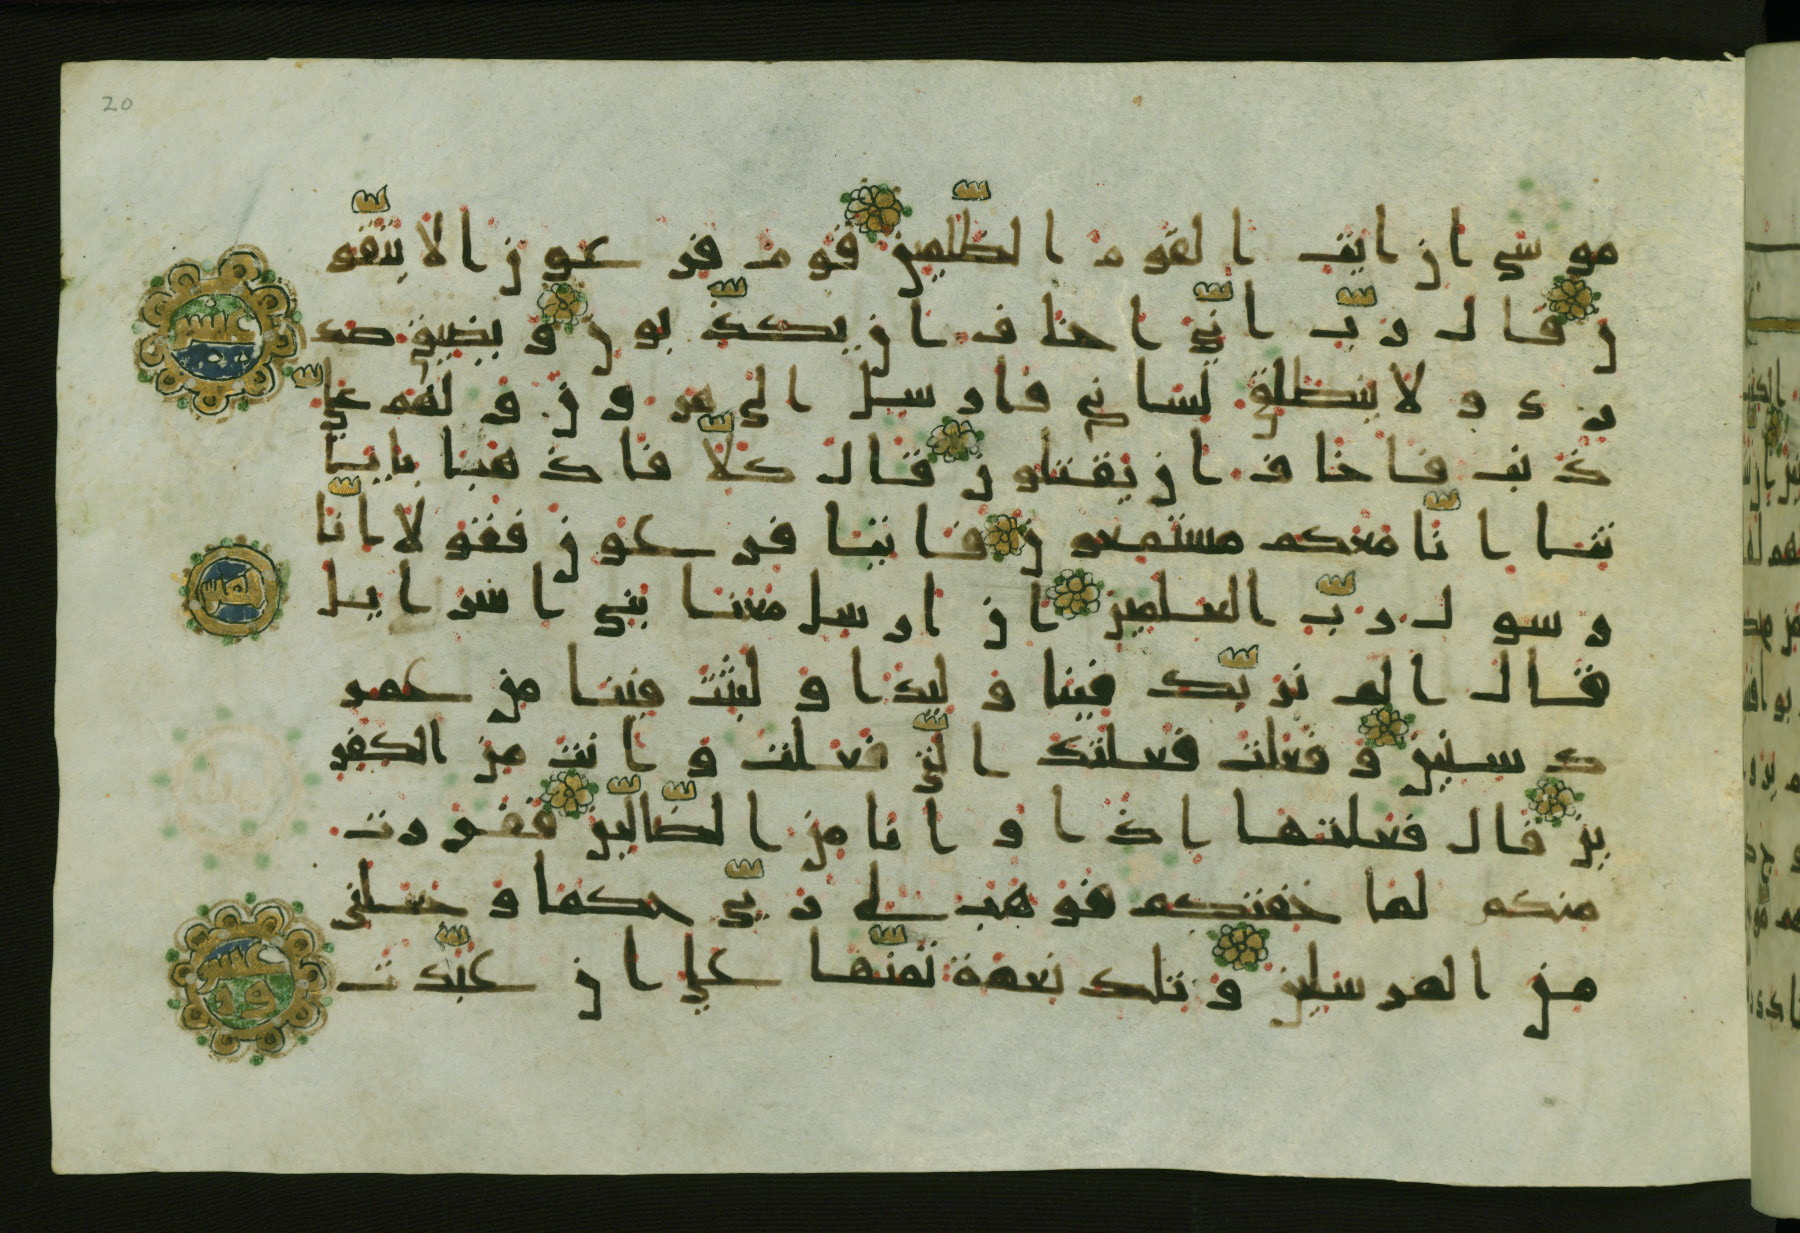 20
موسى ان ايت ا لقو م ا لظلمين قو م فر عو ن ا لا يتقو
ن قا ل ر ب ا ني ا خا ف ا ن يكذ بو ن و يضيق صد
ر ي و لا ينطلق لسا ني فا ر سل ا لى هر و ن و لهم علي
ذ نب فا خا ف ا ن يقتلو ن قا ل كلا فا ذ هبا با يـ
تنا ا نا معكم مستمعو ن فا تيا فر عو ن فقو لا ا نا
ر سو ل ر ب العلمين ا ن ا ر سل معنا بني ا سر ا يل
قا ل ا لم نر بك فينا و ليد ا و لبثت فينا من عمر
ك سنين و فعلت فعلتك ا لتي فعلت و ا نت من الكفر
ين قا ل فعلتها ا ذ ا و ا نا من ا لضالين ففر ر ت
منكم لما خفتكم فو هب لي ر بي حكما و جعلني
من ا لمر سلين و تلك نعمة تمنها علي ا ن عبد ت